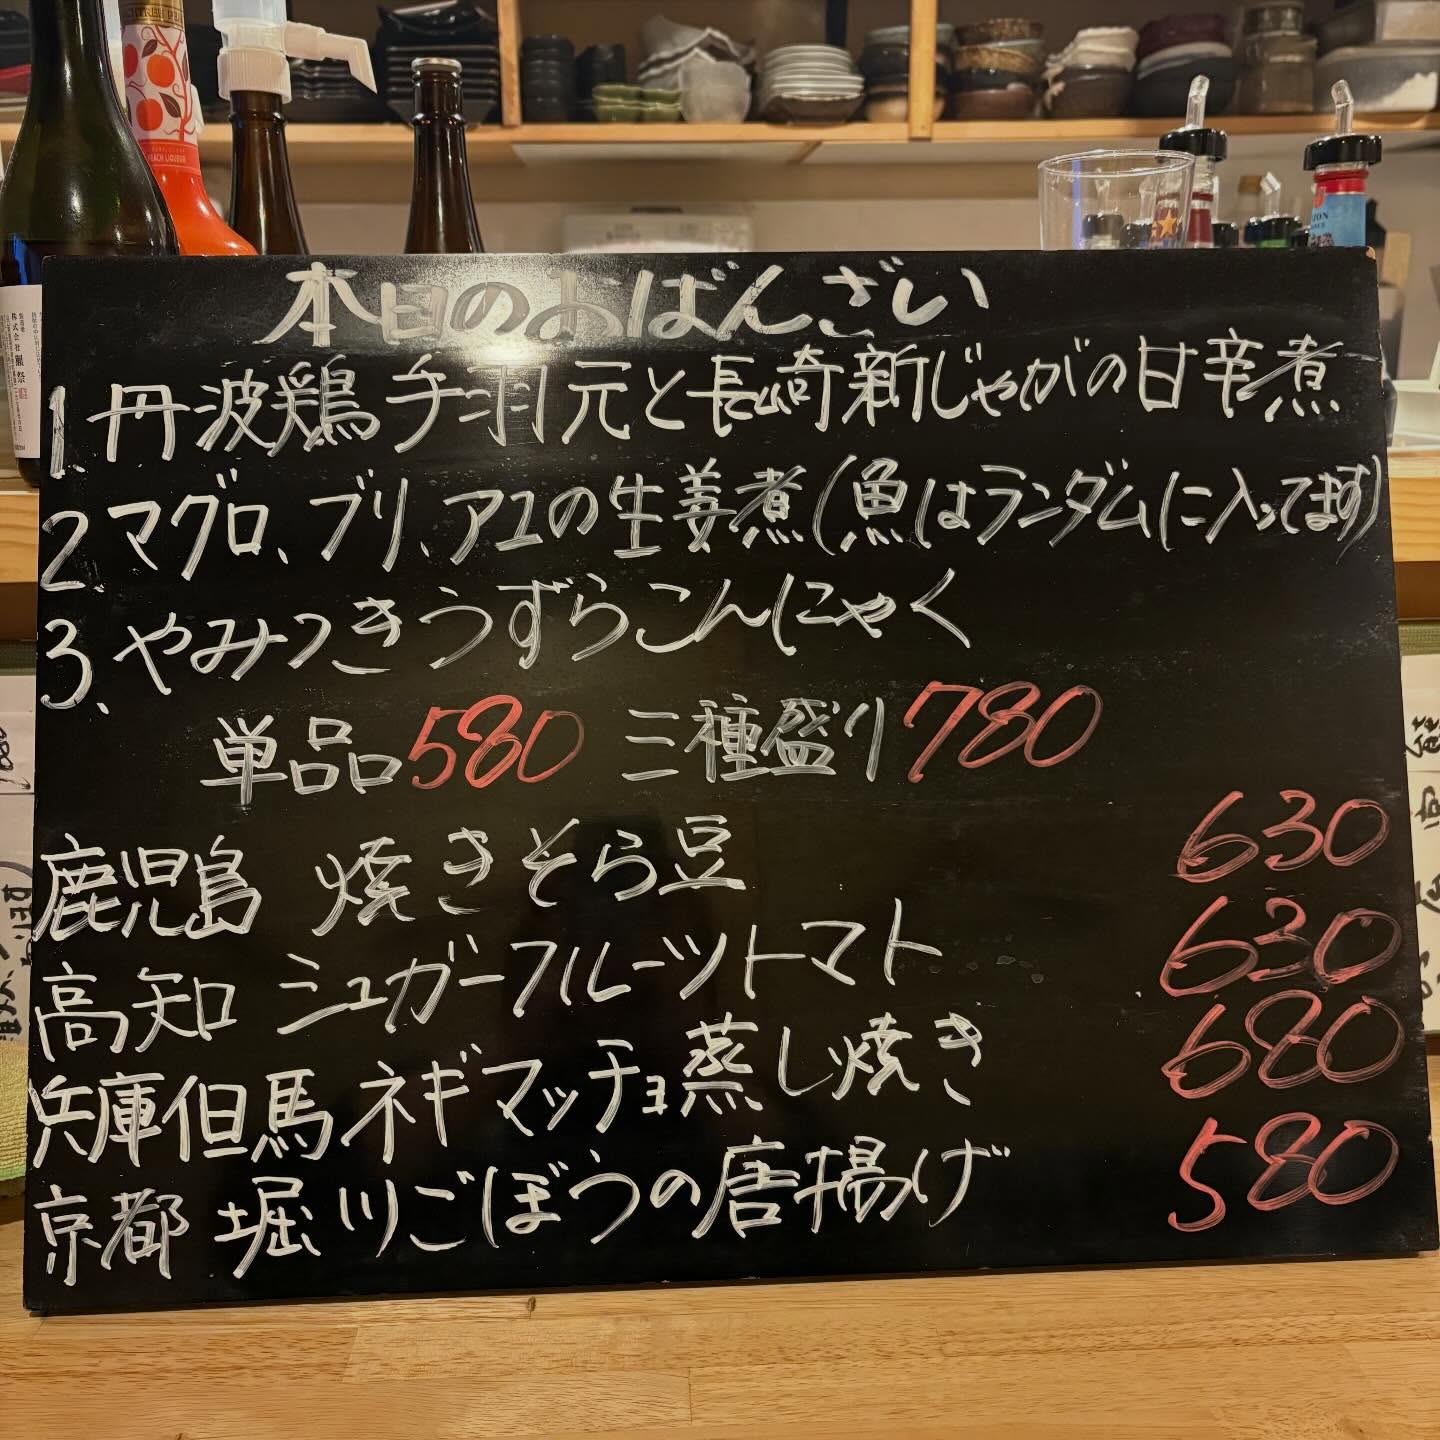 本日のおばんざい
1.丹波鶏手羽元と長崎新じゃがの甘辛煮
2.マグロ、ブリ、アユの生姜煮(魚はランダムに入ってます)
3.やみつきうずらこんにゃく
単品580 三種盛り780
鹿児島 焼きそら豆 630
高知 シュガーフルーツトマト 630
兵庫但馬ネギマッチョ蒸し焼き 680
京都 堀川ごぼうの唐揚げ 580
PEACH LIQUEUR